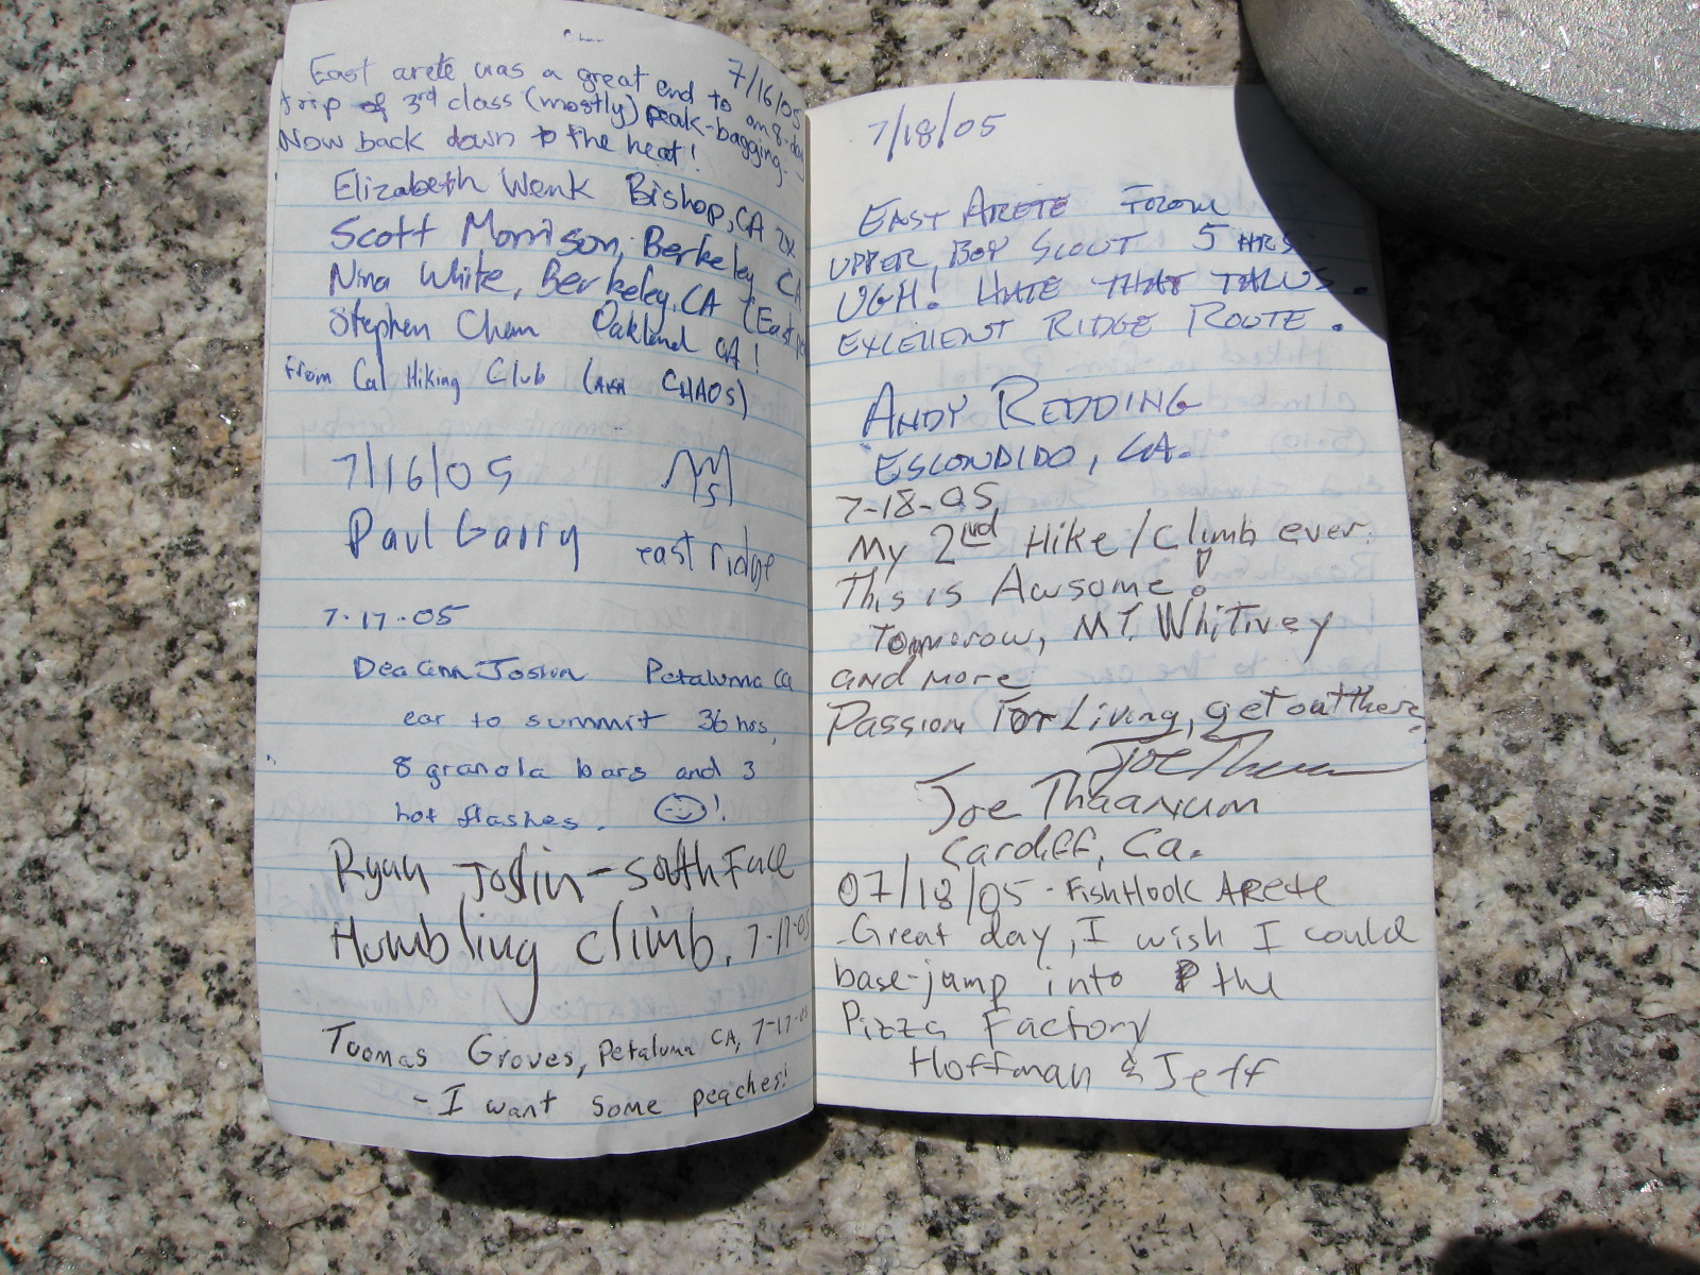 7/16/05
East areté was a great end to our 8-day
trip of 3rd class (mostly) peak-bagging.
Now back down to the heat!
Elizabeth Wenk Bishop, CA 2x
Scott Morrison, Berkeley CA
Nina White, Berkeley, CA (East
Stephen Chan Oakland CA!
from Cal Hiking Club (AKA CHAOS)
7/16/05
Paul Garry east ridge
7-17-05
Deaann Joslin Petaluma CA
car to summit 36 hrs,
8 granola bars and 3
hot flashes. !
Ryan Joslin - South Face
Humbling climb. 7-17-05
Toomas Groves, Petaluma CA, 7-17-05
- I want some peaches!
7/18/05
EAST ARETE FROM
UPPER BOY SCOUT 5 HRS
UGH! HATE THAT TALUS.
EXCELLENT RIDGE ROUTE.
ANDY REDDING
ESCONDIDO, CA.
7-18-05
My 2nd Hike/Climb ever.
This is Awsome!
Tomorrow, MT. Whitney
and more
Passion For Living, get out there
Joe Thaanum
Cardiff, Ca.
07/18/05 - FISHHOOK ARETE
-Great day, I wish I could
base-jump into the
Pizza Factory
Hoffman & Jeff